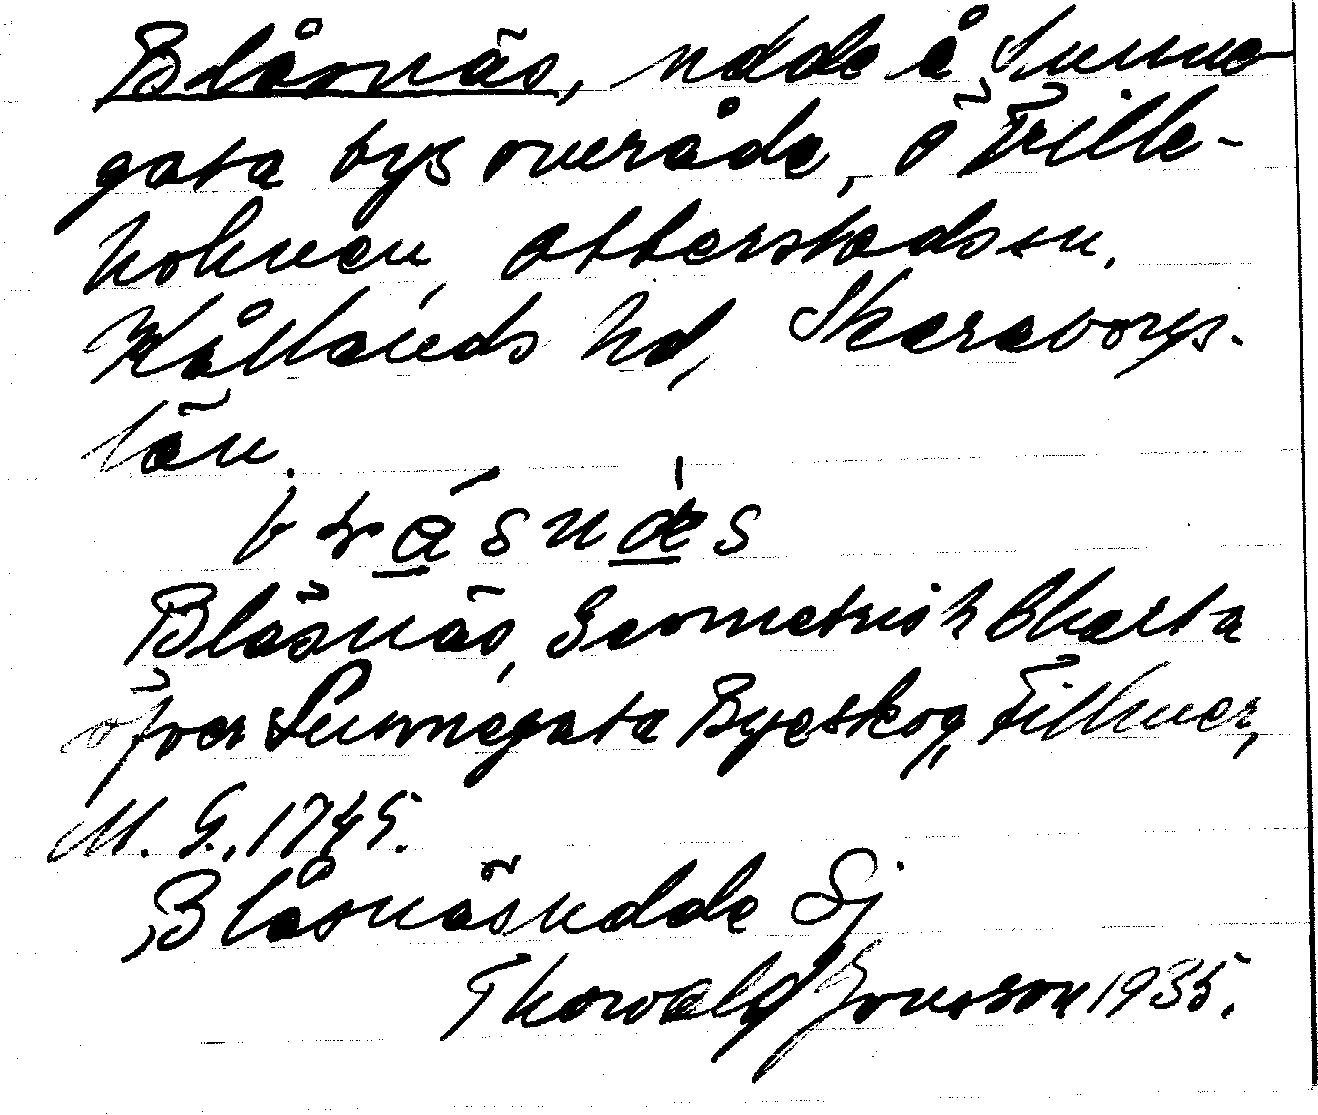 Blåsnäs, udde å Sunna-
gata bys område, ö Trille-
holmen, Otterstads sn,
Kållands hd, Skaraborgs.
län.
Blåsnäs, Geometrisk Charta
öfver Sunnegata Byeskog,
M. G., 1745.
Blåsnäsudde Sj
Thorvald Jonsson 1935.